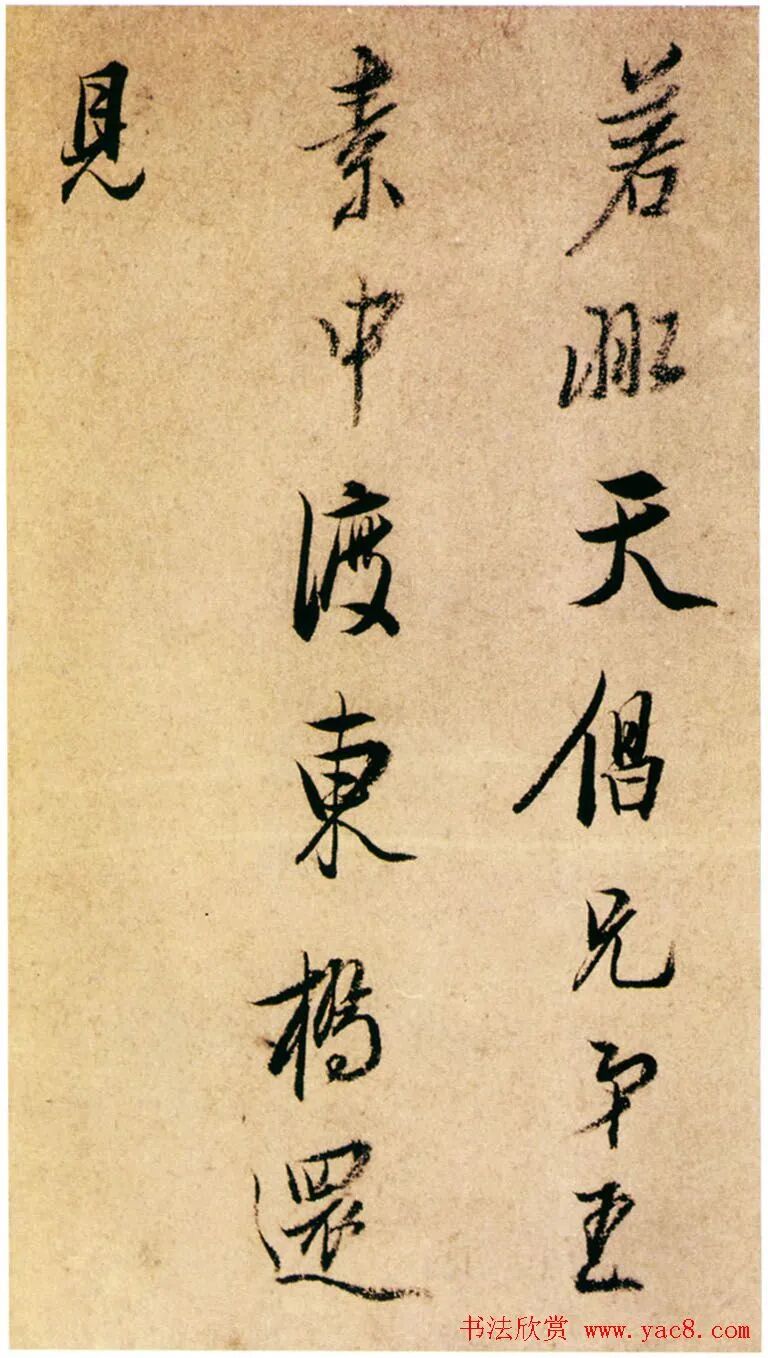 若天倡兄弟王
素中渡東橋還
見
书法欣赏 www.yac8.com